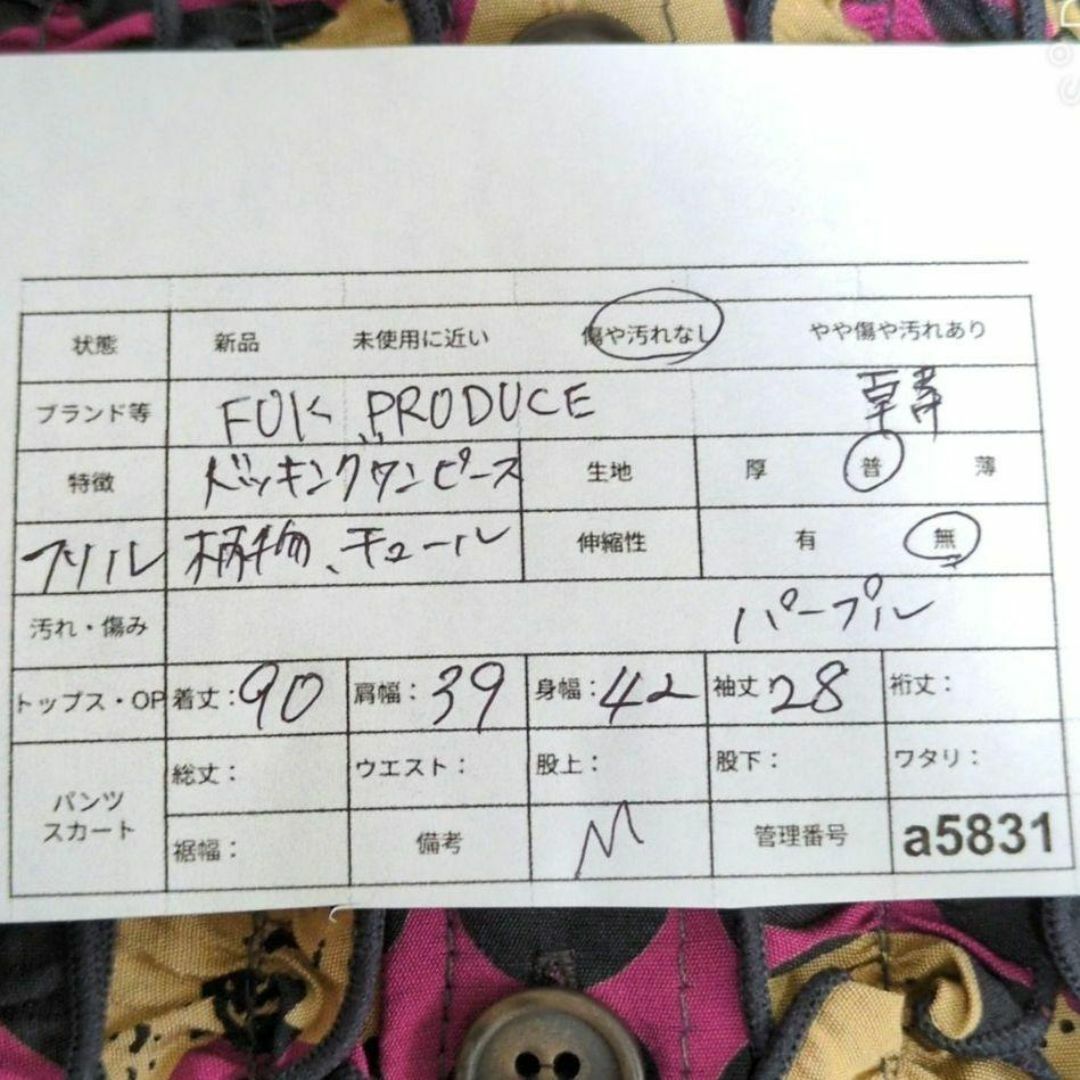 状態 新品 未使用に近い 傷や汚れなし やや傷や汚れあり
ブランド等 FOK PRODUCE
特徴 ドッキングワンピース 生地 厚 普 薄
フリル 柄物、チュール 伸縮性 有 無
汚れ・傷み パープル
トップス・OP 着丈：90 肩幅：39 身幅：42 袖丈：28 裄丈：
パンツ スカート 総丈： ウエスト： 股上： 股下： ワタリ：
裾幅： 備考 M 管理番号 a5831